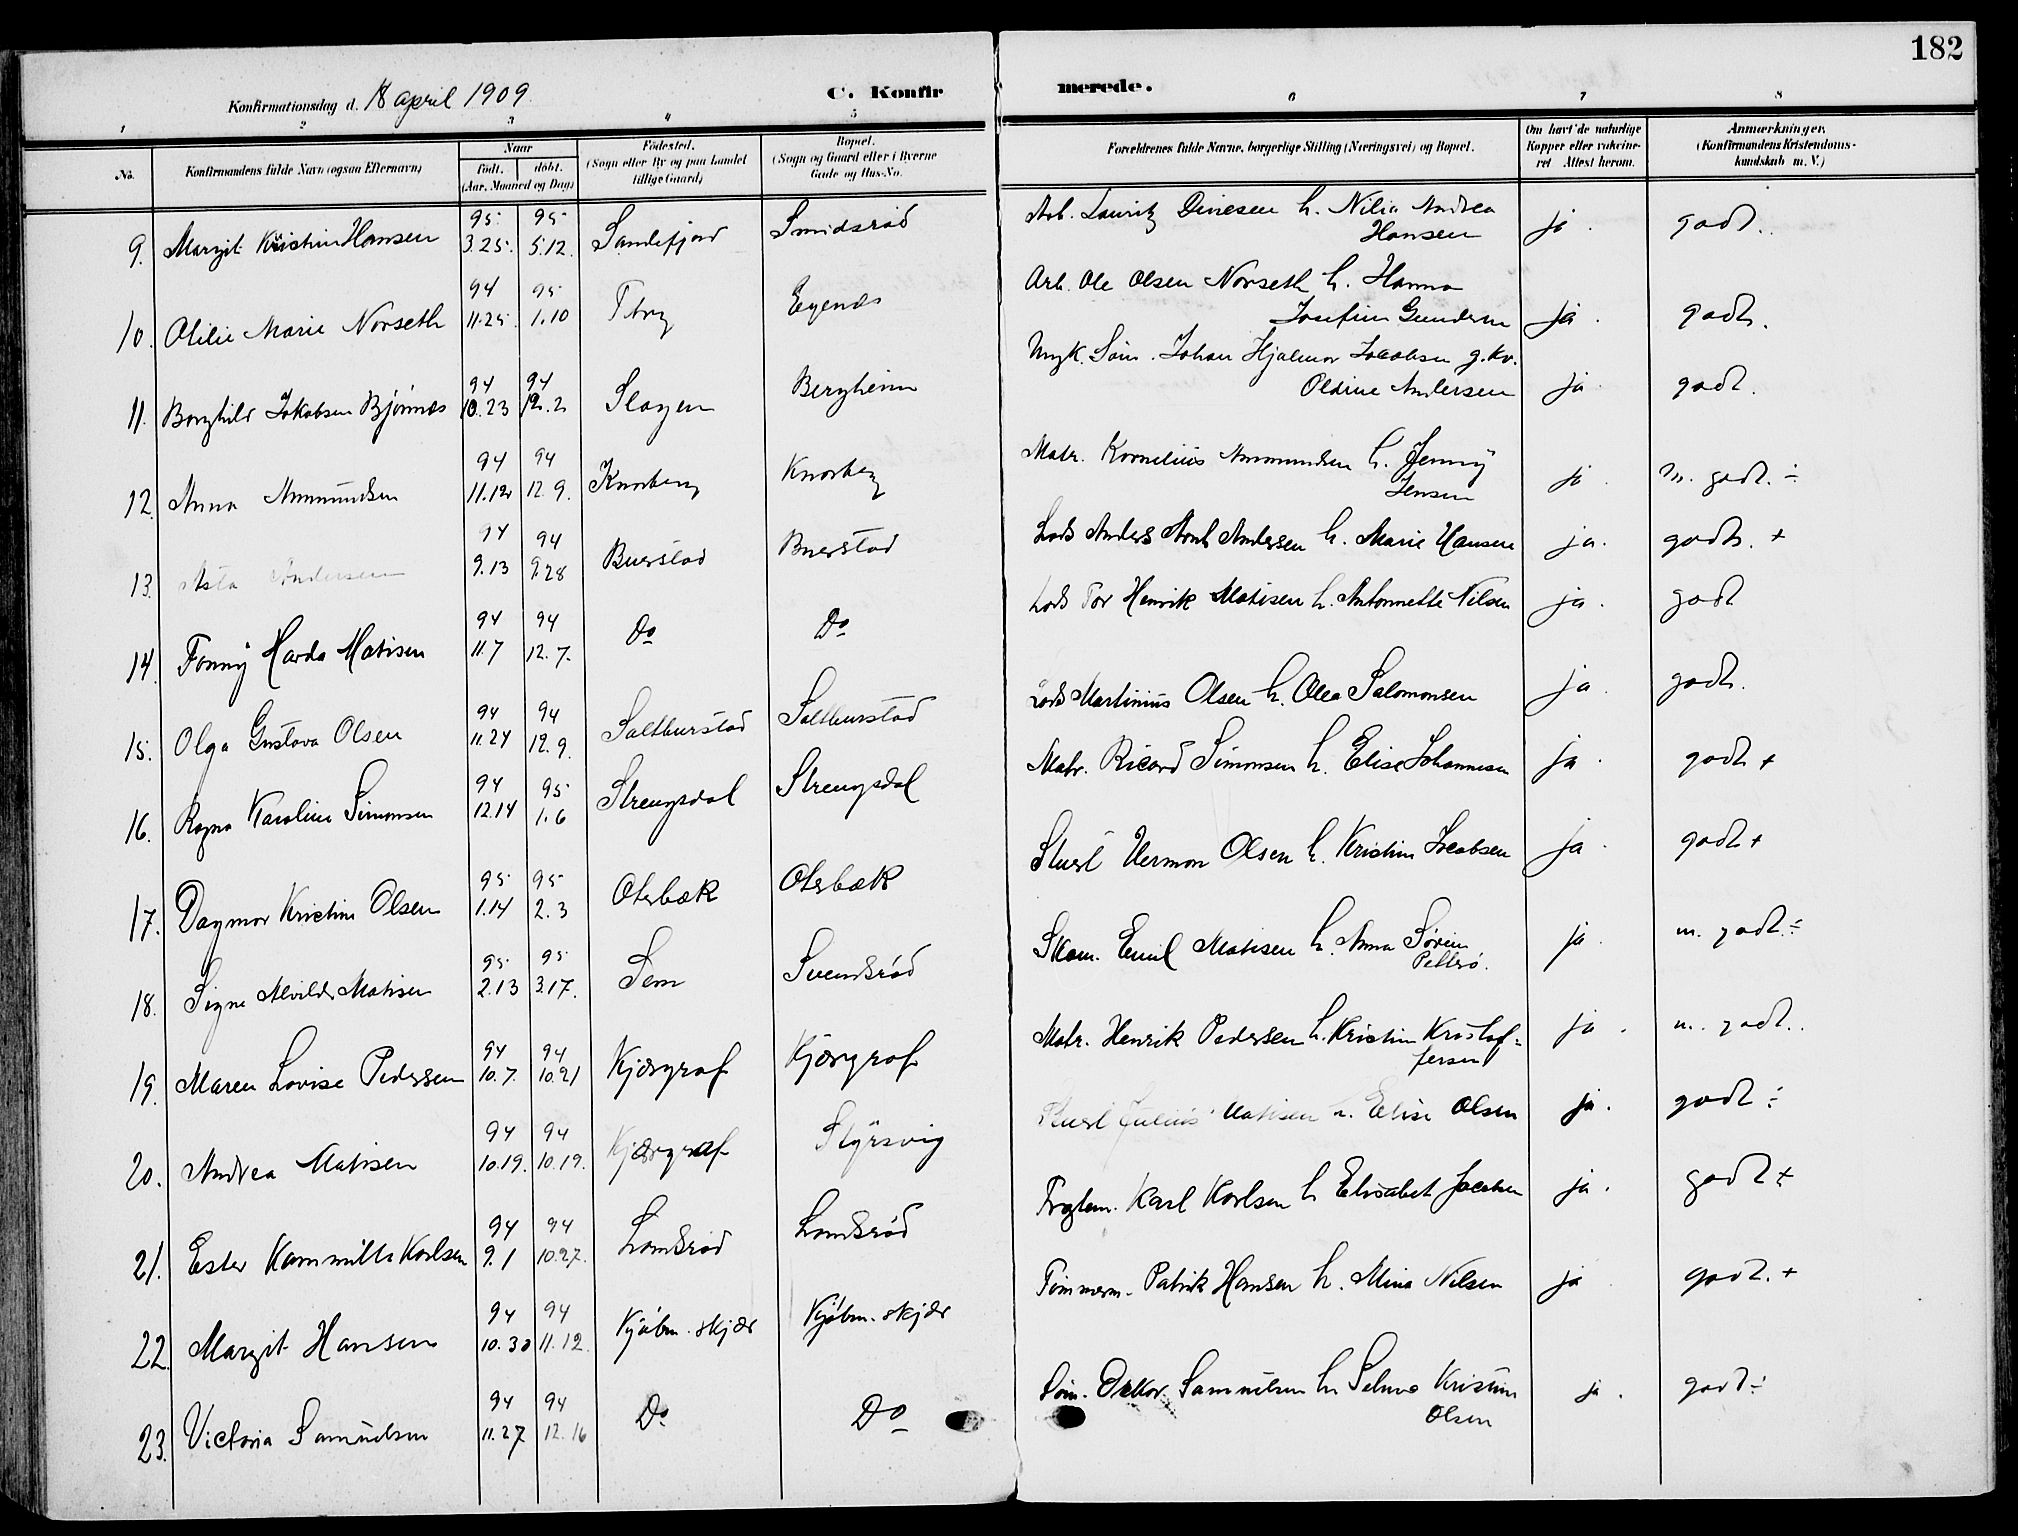 182
Konfirmationsdag d. 18 april 1909
C. Konfirmerede.
1 2 3 4 5 6 7 8
No. Konfirmandens fulde Navn (ogsaa Efternavn) Naar født. døbt. (Aar, Maaned og Dag) Fødested. (Sogn eller By og paa Landet tillige Gaard) Bopæl. (Sogn og Gaard eller i Byerne Gade og Hus-No. Forældrenes fulde Navne, borgerlige Stilling (Næringsvei) og Bopæl. Om havt de naturlige Kopper eller vakcineret Attest herom. Anmærkninger. (Konfirmandens Kristendomskundskab m. V.)
9. Margit Kristin Hansen 95 3.25. 95 5.12. Sandefjord Smidsrød Arb. Lauritz Dinesen h. Nilia Andrea Hansen ja. godt.
10. Otilie Marie Norseth 94 11.25. 95 1.10 Egenes Arb. Ole Olsen Norseth h. Hanna Josefine Gundersen ja. godt.
11. Borghild Jakobsen Bjønnes 94 10.23 94 12.2 Slagen Bergheim Søm. Johan Hjalmar Jacobsen g. kv. Oldine Andersen ja. godt.
12. Anna Ammundsen 94 11.12 94 12.9. Knarberg Knarberg Matr. Kornelius Ammundsen h. Jenny Jensen ja. m. godt. ÷
13. Asta Andersen 94 9.13 94 9.28 Buerstad Buerstad Lods Anders Arnt Andersen h. Marie Hansen ja. godt. +
14. Fanny Harda Matisen 94 11.7 94 12.7. Do Do Lods Tor Henrik Matisen h. Antonnette Nilsen ja. godt
15. Olga Gustava Olsen 94 11.24 94 12.9. Saltburstad Saltburstad Lods Martinius Olsen h. Olea Salomonsen ja. godt.
16. Ragna Karoline Simonsen 94 12.14 95 1.6 Strengsdal Strengsdal Matr. Ricard Simonsen h. Elise Johannesen ja. godt +
17. Dagmar Kristine Olsen 95 1.14 95 2.3 Oterbæk Oterbæk Stuert Herman Olsen h. Kristine Jacobsen ja. godt +
18. Signe Alvilde Matisen 95 2.13 95 3.17. Sem Svendsrød Skom. Emil Matisen h. Anna Sørine Pettersø. ja. m. godt. ÷
19. Maren Lovise Pedersen 94 10.7. 94 10.21 Kjærgraf Kjærgraf Matr. Henrik Pedersen h. Kristine Kristoffersen ja. m. godt..
20. Andrea Matisen 94 10.19. 94 10.19. Kjærgraf Styrsvig Stuert Julius Matisen h. Elise Olsen ja. godt ÷
21. Ester Kammilla Karlsen 94 9.1 94 10.27. Lomsrød Lomsrød Fyglem. Karl Karlsen h Elisabet Jacobsen ja. godt ÷
22. Margit Hansen 94 10.30 94 11.12. Kjøbm.skjær Kjøbm.skjær Tømmerm. Patrik Hansen h. Mina Nilsen ja godt. +
23. Victoria Samuelsen 94 11.27 94 12.16 Do Do Søm. Oskar Samuelsen h. Selma Kristine Olsen ja. godt ÷